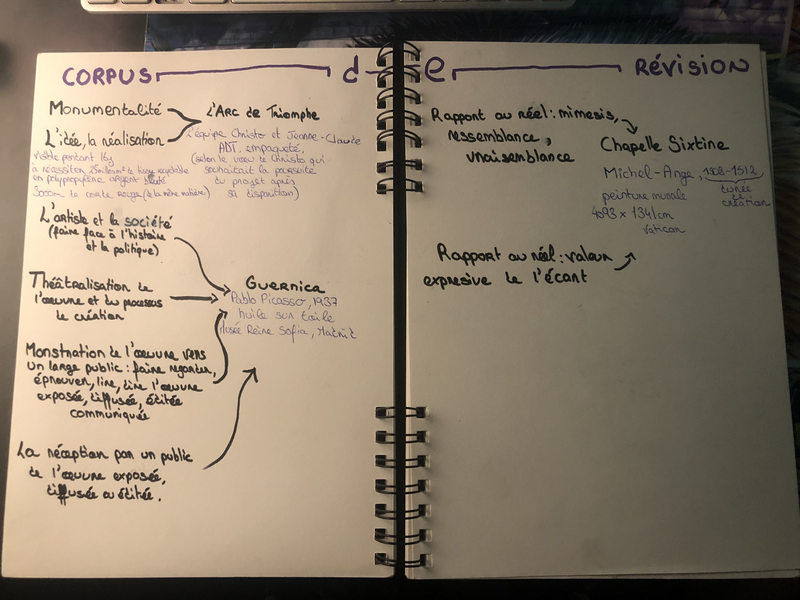 CORPUS d-e RÉVISION
Monumentalité
L'idée, la réalisation
L'Arc de Triomphe
L'équipe Christo et Jeanne-Claude
ADT, empaqueté,
(selon le vœu de Christo qui
souhaitait la poursuite
du projet après
sa disparition)
visible pendant 16j
a nécessité 25mille m² de tissu recyclable
en polypropylène argent bleuté
3000m de corde rouge (de la même matière)
L'artiste et la société
(faire face à l'histoire
et la politique)
Théâtralisation de
l'œuvre et du processus
de création
Monstration de l'œuvre vers
un large public : faire regarder,
éprouver, lire, dire l'œuvre
exposée, diffusée, éditée
communiquée
La réception par un public
de l'œuvre exposée,
diffusée ou éditée.
Guernica
Pablo Picasso, 1937
huile sur toile
Musée Reine Sofia, Madrid
Rapport au réel : mimesis,
ressemblance,
vraisemblance
Chapelle Sixtine
Michel-Ange, 1508-1512
durée
de
création
peinture murale
4093 × 1341cm
Vatican
Rapport au réel : valeur
expresive de l'écart